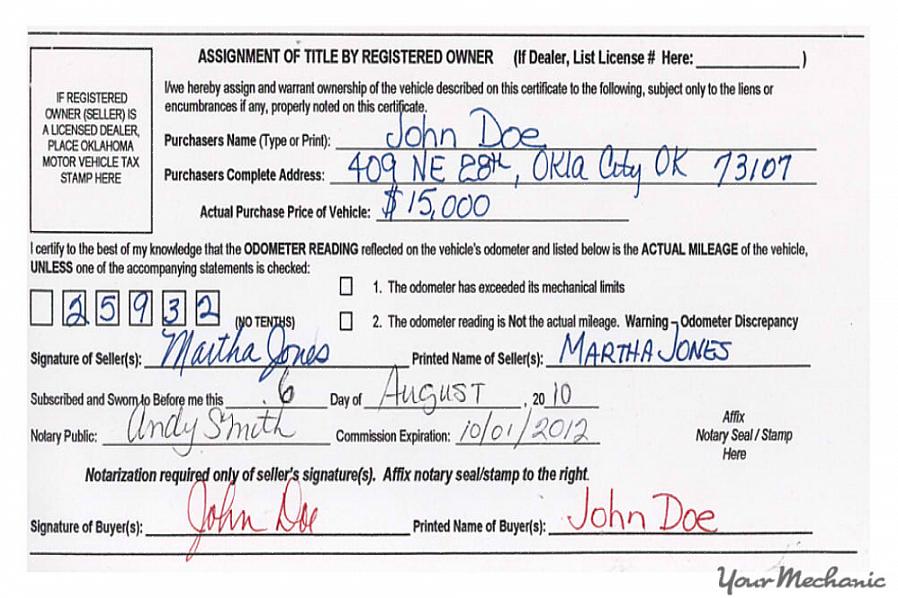 ASSIGNMENT OF TITLE BY REGISTERED OWNER (If Dealer, List License # Here: )
IF REGISTERED
OWNER (SELLER) IS
A LICENSED DEALER,
PLACE OKLAHOMA
MOTOR VEHICLE TAX
STAMP HERE
I/we hereby assign and warrant ownership of the vehicle described on this certificate to the following, subject only to the liens or
encumbrances if any, properly noted on this certificate.
Purchasers Name (Type or Print): John Doe
Purchasers Complete Address: 409 NE 28th, Okla City OK 73107
Actual Purchase Price of Vehicle: $15,000
I certify to the best of my knowledge that the ODOMETER READING reflected on the vehicle's odometer and listed below is the ACTUAL MILEAGE of the vehicle,
UNLESS one of the accompanying statements is checked:
1. The odometer has exceeded its mechanical limits
25932 (NO TENTHS)
2. The odometer reading is Not the actual mileage. Warning – Odometer Discrepancy
Signature of Seller(s): Martha Jones Printed Name of Seller(s): MARTHA JONES
Subscribed and Sworn to Before me this 6 Day of August, 2010
Notary Public: Andy Smith Commission Expiration: 10/01/2012
Affix
Notary Seal / Stamp
Here
Notarization required only of seller's signature(s). Affix notary seal/stamp to the right.
Signature of Buyer(s): John Doe Printed Name of Buyer(s): John Doe
YourMechanic